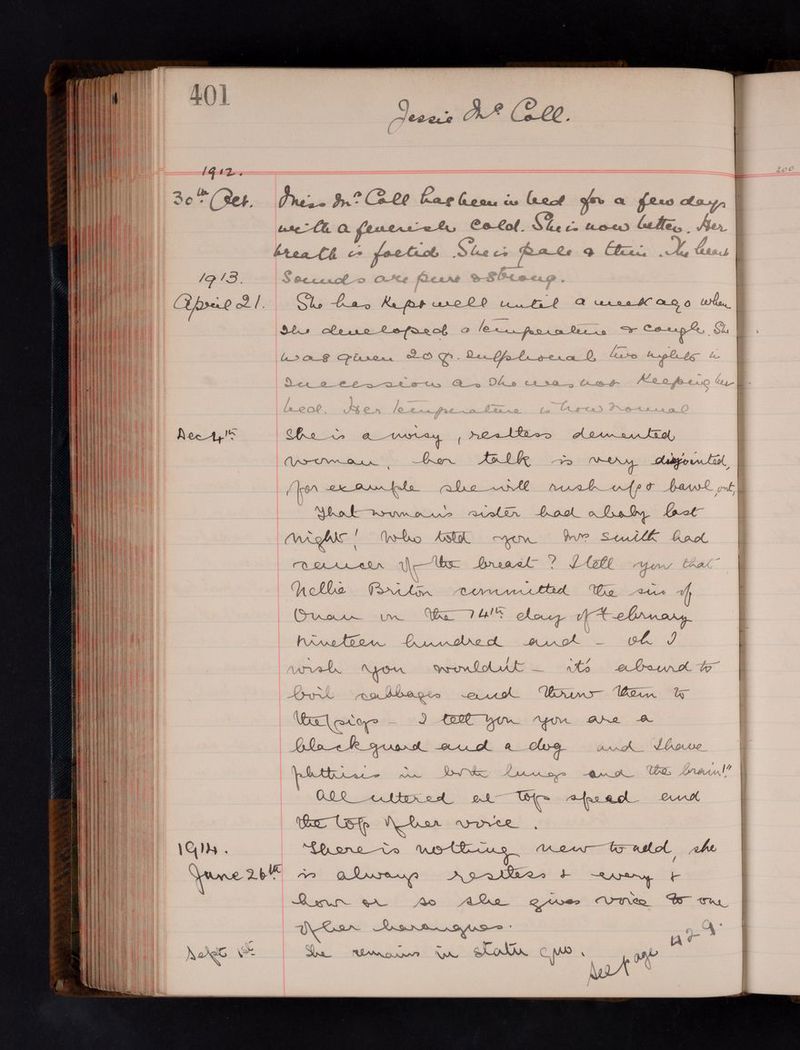 401
Jessie McColl.
1912.
30th Oct. Miss McColl has been in bed for a few days
with a feverish cold. She is now better. Her
breath is foetid. She is pale & thin. The heart
1913. Sounds are pure & strong.
April 21. She has kept well until a week ago when
she developed a temperature & cough. She
was given 20 gr. Sulphonal two nights in
succession as she was not keeping her
bed. Her temperature is now normal
Dec 4th She is a noisy, restless demented
woman, her talk is very disjointed,
for example she will rush up & bawl out,
"That woman's sister had a baby last
night! Who told you Mrs Smith had
cancer of the breast? I tell you that
Nellie Briton committed the sin of
Onan on the 14th day of February
nineteen hundred and - oh I
wish you wouldn't - it's absurd to
boil cabbages and throw them to
the pigs - I tell you you are a
blackguard and a dog and I have
phthisis in both lungs and the brain!"
All uttered at top speed and
the top of her voice.
1914. There is nothing new to add, she
June 26th is always restless & every ½
hour or so she gives voice to one
of her harangues.
Sept 1st She remains in statu quo. See page 429.
200